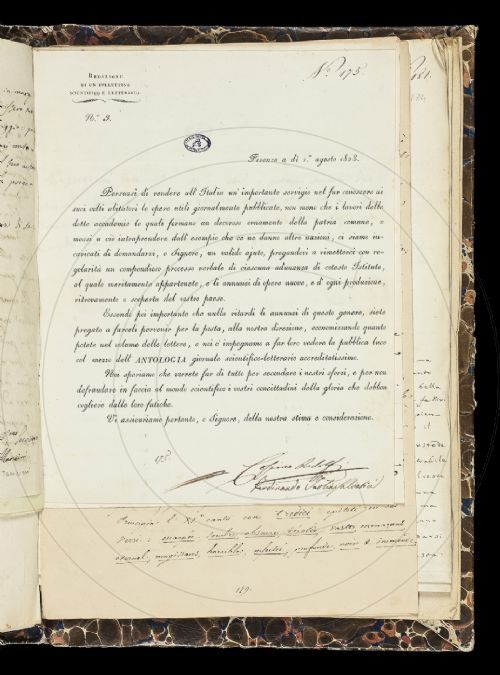 REDAZIONE
DI UN BULLETTINO
SCIENTIFICO E LETTERARIO
N.º 3.
N.º 175.
181.
Firenze a dì 1.º agosto 1828.
Persuasi di rendere all'Italia un'importante servigio nel far conoscere ai
suoi colti abitatori le opere utili giornalmente pubblicate, non meno che i lavori delle
dotte accademie le quali formano un decoroso ornamento della patria comune, e
mossi a ciò intraprendere dall'esempio che ce ne danno altre nazioni, ci siamo in-
caricati di domandarvi, o Signore, un valido ajuto, pregandovi a rimetterci con re-
golarità un compendioso processo verbale di ciascuna adunanza di cotesto Istituto,
al quale meritamente appartenete, e li annunzi di opere nuove, e d'ogni produzione,
ritrovamento o scoperta del vostro paese.
Essendo poi importante che nulla ritardi li annunzi di questo genere, siete
pregato a farceli pervenire per la posta, alla nostra direzione, economizzando quanto
potete nel volume delle lettere, e noi c'impegniamo a far loro vedere la pubblica luce
col mezzo dell'ANTOLOGIA giornale scientifico-letterario accreditatissimo.
Noi speriamo che vorrete far di tutto per secondare i nostri sforzi, e per non
defraudare in faccia al mondo scientifico i vostri concittadini della gloria che debbon
cogliere dalle loro fatiche.
Vi assicuriamo pertanto, o Signore, della nostra stima e considerazione.
175
Ferdinando
Principia l' XI.º canto con tredici epiteti
versi:
eternal, mugissans, horrible, infectés, profonds, noir & immense,
119.